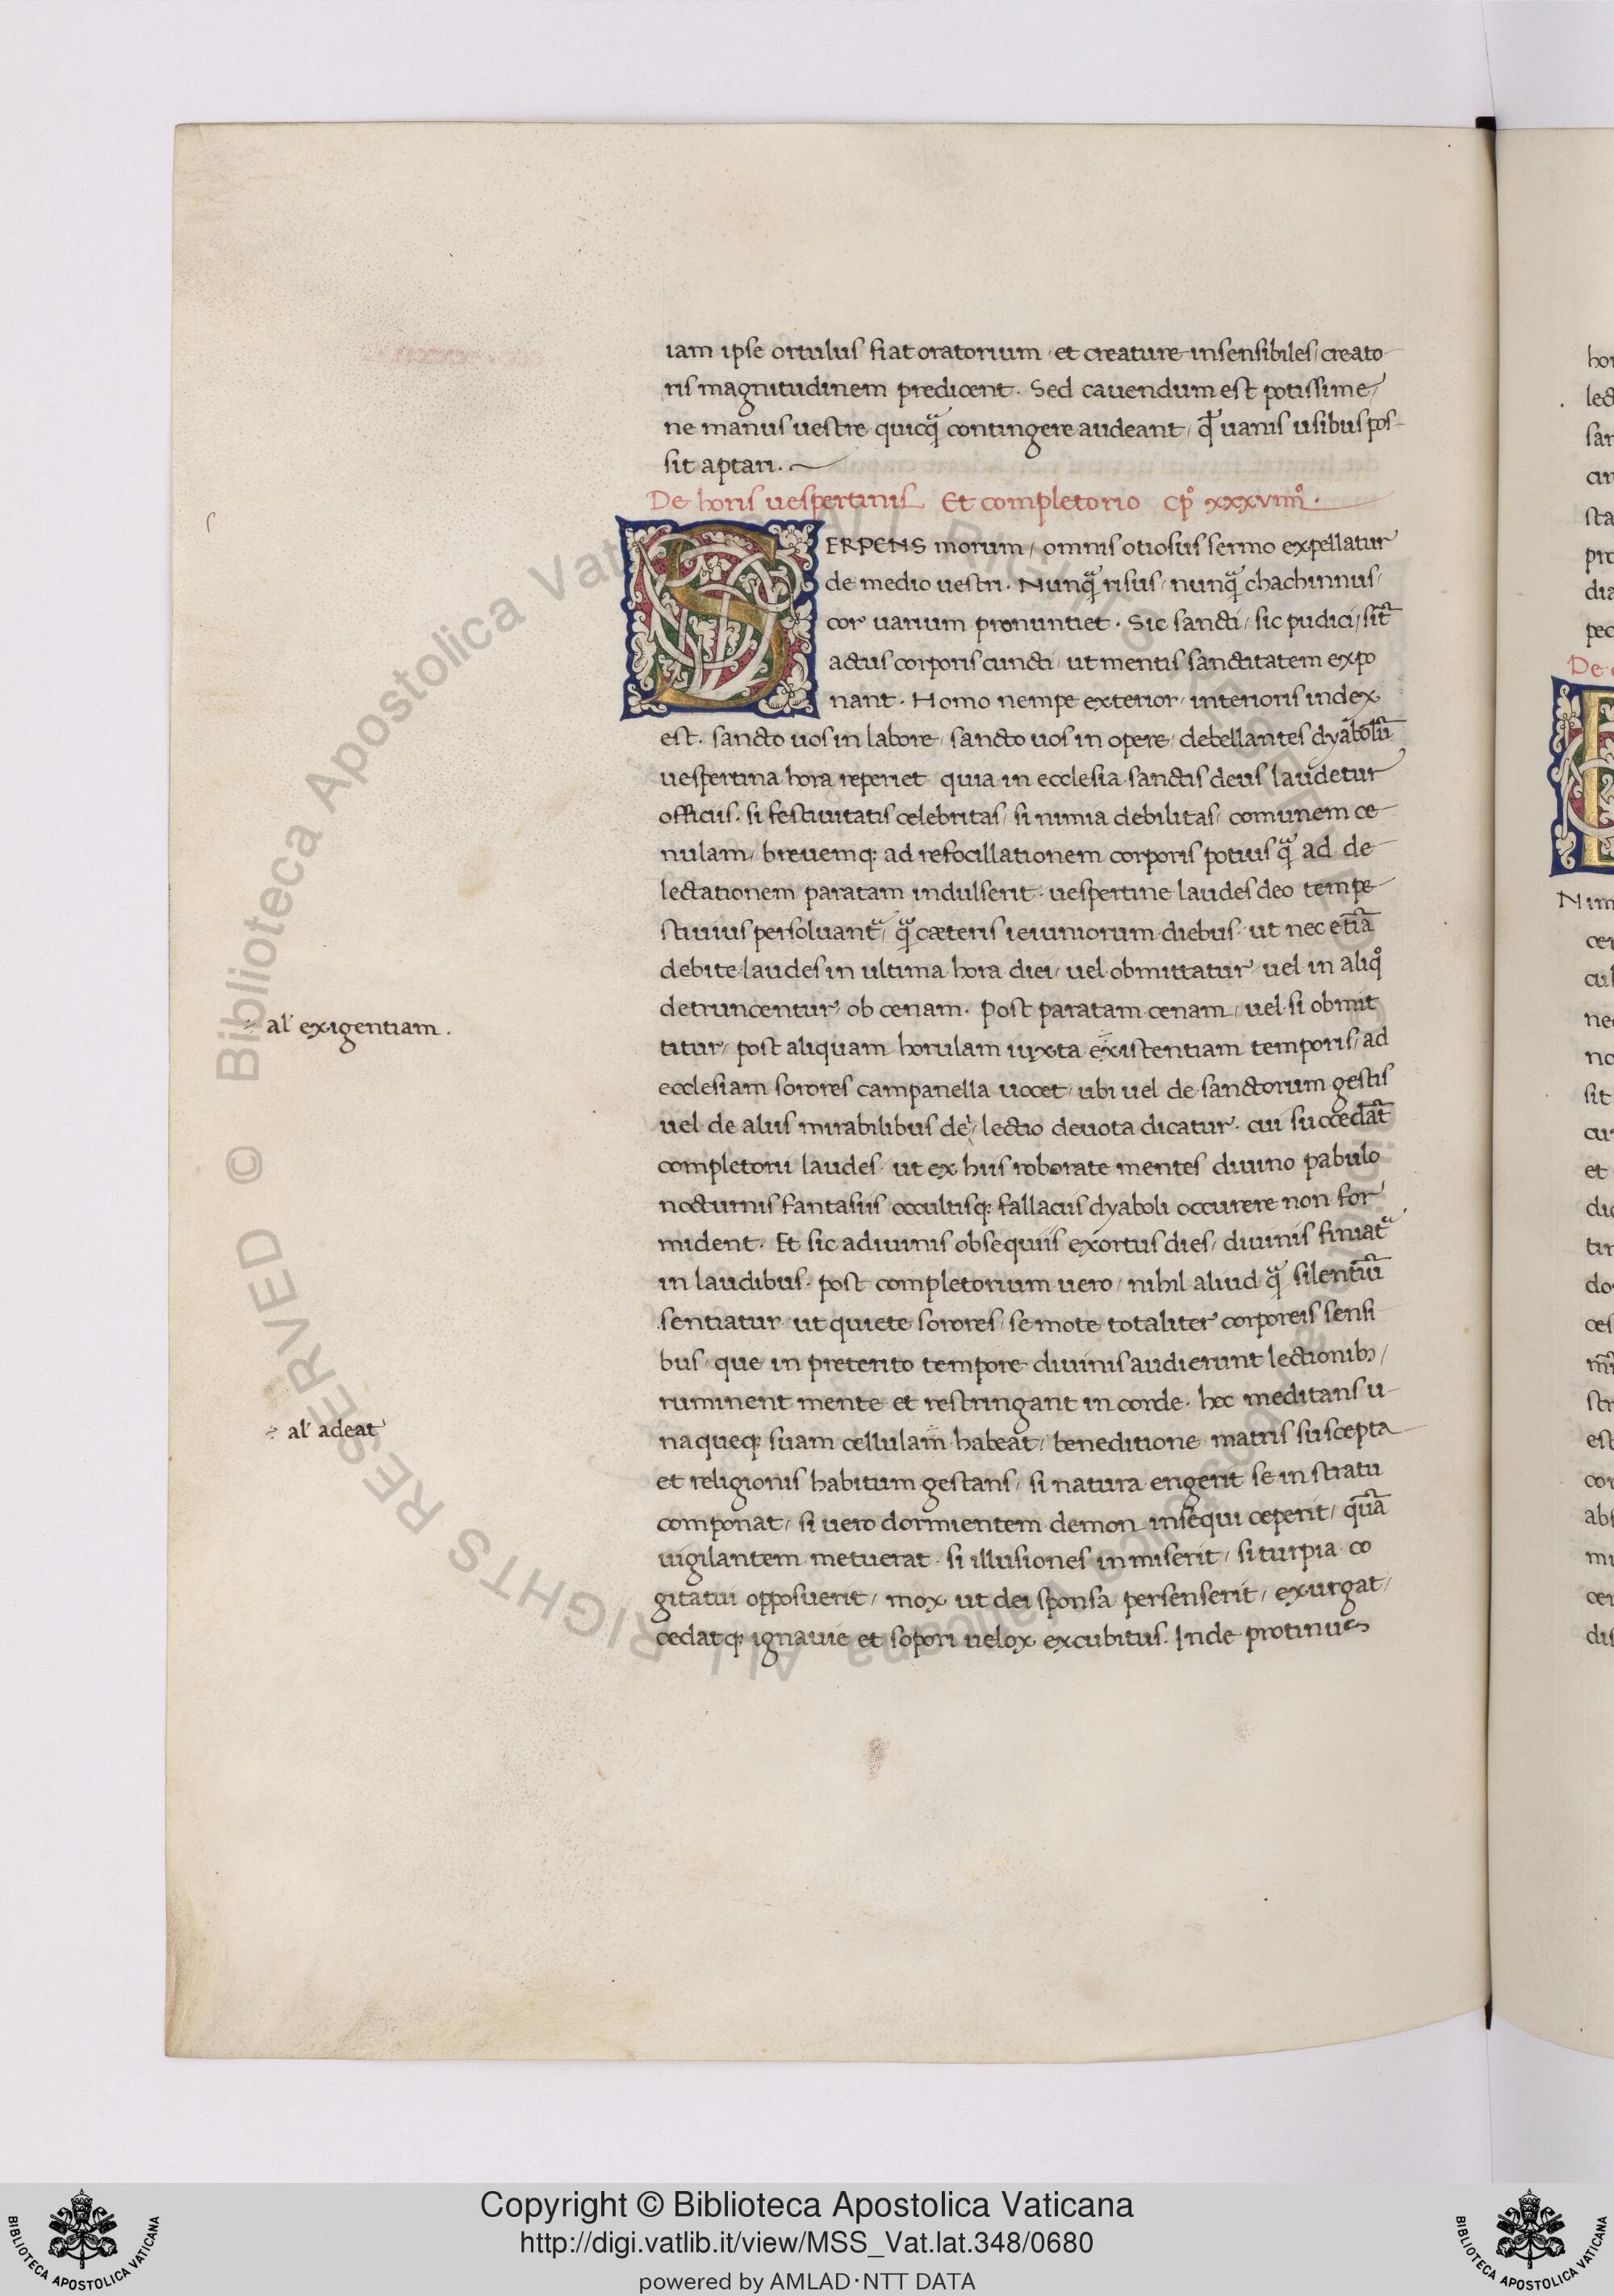 iam ipse ortulus fiat oratorium / et creature insensibiles / creato-
ris magnitudinem predicent. Sed cauendum est potissime /
ne manus uestre quicq̃ contingere audeant / q̃ uanis usibus pos-
sit aptari.
De horis uespertinis Et completorio Cp̊ xxxviiii̊.
SERPENS morum / omnis otiosus sermo expellatur
de medio uestri. Nunq̃ risus / nunq̃ chachinnus /
cor uarium pronuntiet. Sic sancti / sic pudici / sĩt
actus corporis cuncti / ut mentis sanctitatem expo
nant. Homo nempe exterior / interioris index
est. sancto uos in labore / sancto uos in opere / debellantes dyabolũ
uespertina hora reperiet quia in ecclesia sanctis deus laudetur
officiis. si festiuitatis celebritas / si nimia debilitas / comunem ce-
nulam / breuemq; ad refocillationem corporis potius q̃ ad de-
lectationem paratam indulserit. uespertine laudes deo tempe-
stiuius persoluantᷣ / q̃ cæteris ieiuniorum diebus. ut nec etiã
debite laudes in ultima hora diei / uel obmittatur uel in aliq̊
detruncentur ob cenam. post paratam cenam / uel si obmit
titur / post aliquam horulam iuxta existentiam temporis / ad
ecclesiam sorores campanella uocet / ubi uel de sanctorum gestis
uel de aliis mirabilibus dei / lectio deuota dicatur. cui succedãt
completorii laudes. ut ex hiis roborate mentes diuino pabulo
nocturnis fantasiis occultisq; fallaciis dyaboli occurere non for
mident. Et sic adiuinis obsequiis exortus dies / diuinis finiatᷣ
in laudibus. post completorium uero / nihil aliud q̃ silentiũ
sentiatur ut quiete sorores / semote totaliter corporeis sensi
bus / que in preterito tempore diuinis audierunt lectionib; /
ruminent mente et restringant in corde. hec meditans u-
naqueq; suam cellulam habeat / beneditione matris suscepta
et religionis habitum gestans / si natura exigerit se in stratu
componat / si uero dormientem demon insequi ceperit / quã
uigilantem metuerat. si illusiones inmiserit / si turpia co
gitatui opposuerit / mox ut dei sponsa persenserit / exurgat /
cedatq; ignauie et sopori uelox excubitus. Inde protinus
al' exigentiam.
al' adeat
Copyright © Biblioteca Apostolica Vaticana
http://digi.vatlib.it/view/MSS_Vat.lat.348/0680
powered by AMLAD·NTT DATA
BIBLIOTECA APOSTOLICA VATICANA
BIBLIOTECA APOSTOLICA VATICANA